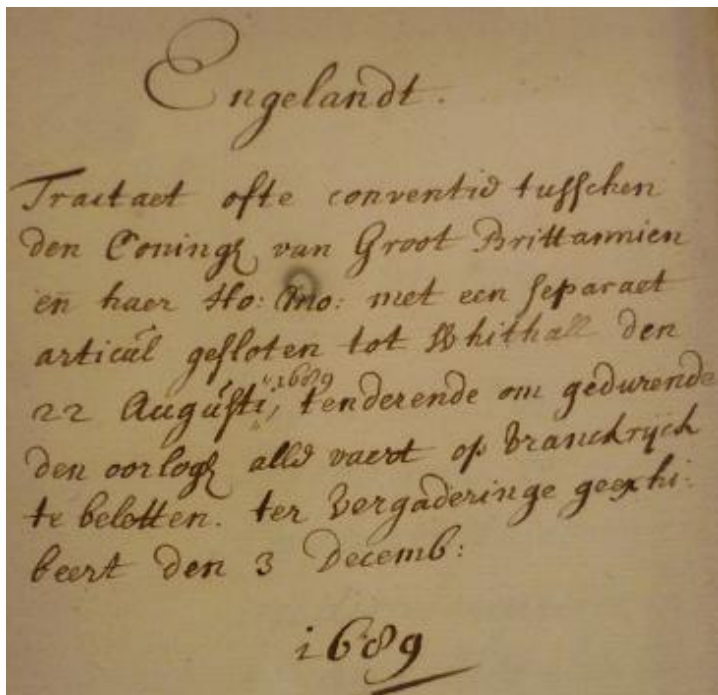 Engelandt.
Tractaet ofte conventie tusschen
den Coningh van Groot Brittannien
en haer Ho: Mo: met een separaet
articul gesloten tot Whithall den
22 Augusti, 1689 tenderende om gedurende
den oorlogh alle vaert op Vranckrijck
te beletten. ter Vergaderinge geexhi:
beert den 3 Decemb:
1689